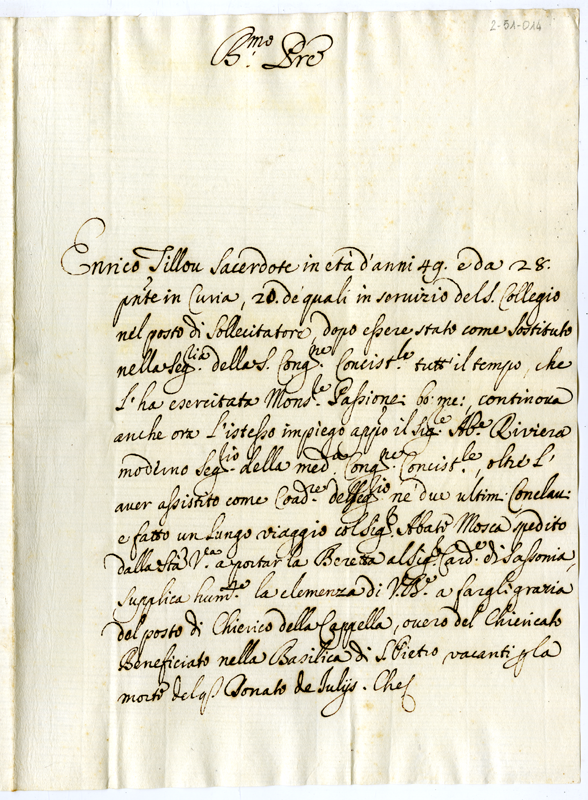 2-51-014
B.mo Pre
Enrico Tillou Sacerdote in età d'anni 49. e da 28.
pnte in Curia, 20. de quali in servizio del S. Collegio
nel posto di Sollecitatore, dopo essere stato come Sostituto
nella Seg.ria della S. Cong.ne Concist.le tutt il tempo, che
l'ha esercitata Mons.re Passione: bo: me:, continova
anche ora l'istesso impiego appo il Sig.e Ab.e Riviera
moderno Seg.rio della med.a Cong.ne Concist.le, oltre l'
aver assistito come Coad.re del Seg.rio ne due ultim. Conclavi
e fatto un lungo viaggio col Sig.r Abate Mosca spedito
dalla Stà V.ra a portar la Beretta al Sig.r Card.e di Sassonia,
Supplica hum.te la clemenza di V. B.e a fargli grazia
del posto di Chierico della Cappella, overo del Chiericato
Beneficiato nella Basilica di S. Pietro vacanti p la
morte del q.m Donato de Iulijs. Che